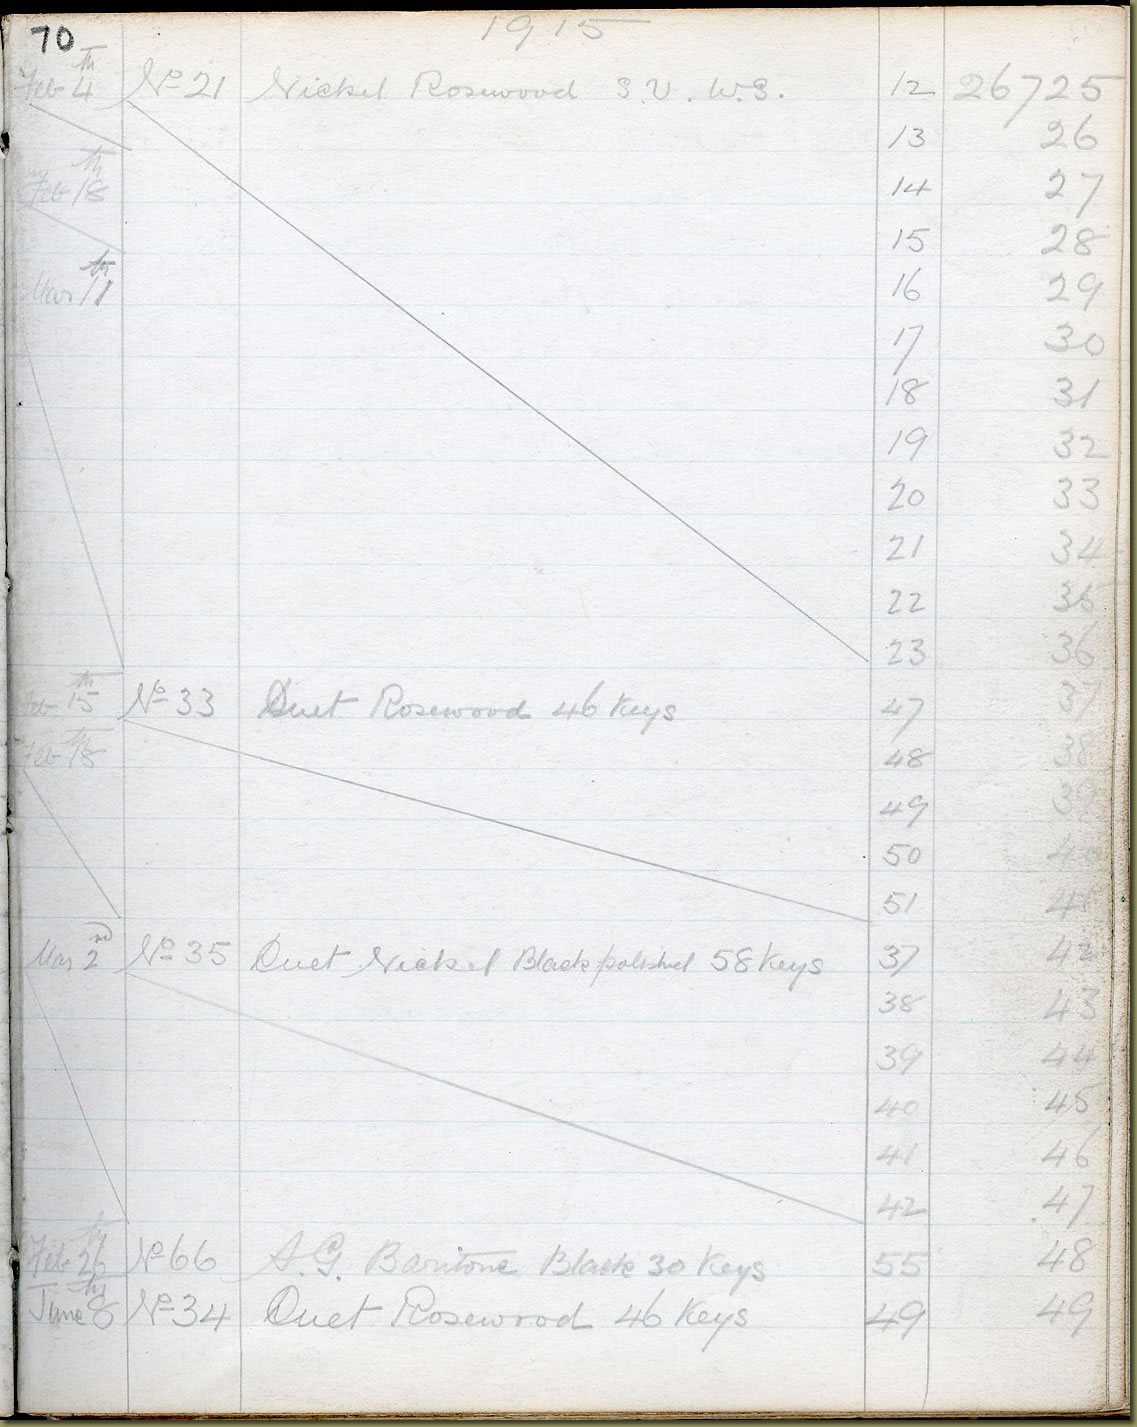 70
1915
Feb 4th No 21 Nickel Rosewood S.V. W.S. 12 26725
13 26
Feb 18th 14 27
15 28
Mar 11th 16 29
17 30
18 31
19 32
20 33
21 34
22 35
23 36
Feb 15th No 33 Duet Rosewood 46 Keys 47 37
Feb 18th 48 38
49 39
50 40
51 41
Mar 2nd No 35 Duet Nickel Black polished 58 Keys 37 42
38 43
39 44
40 45
41 46
42 47
Feb 26th No 66 A.G. Baritone Black 30 Keys 55 48
June 8th No 34 Duet Rosewood 46 Keys 49 49